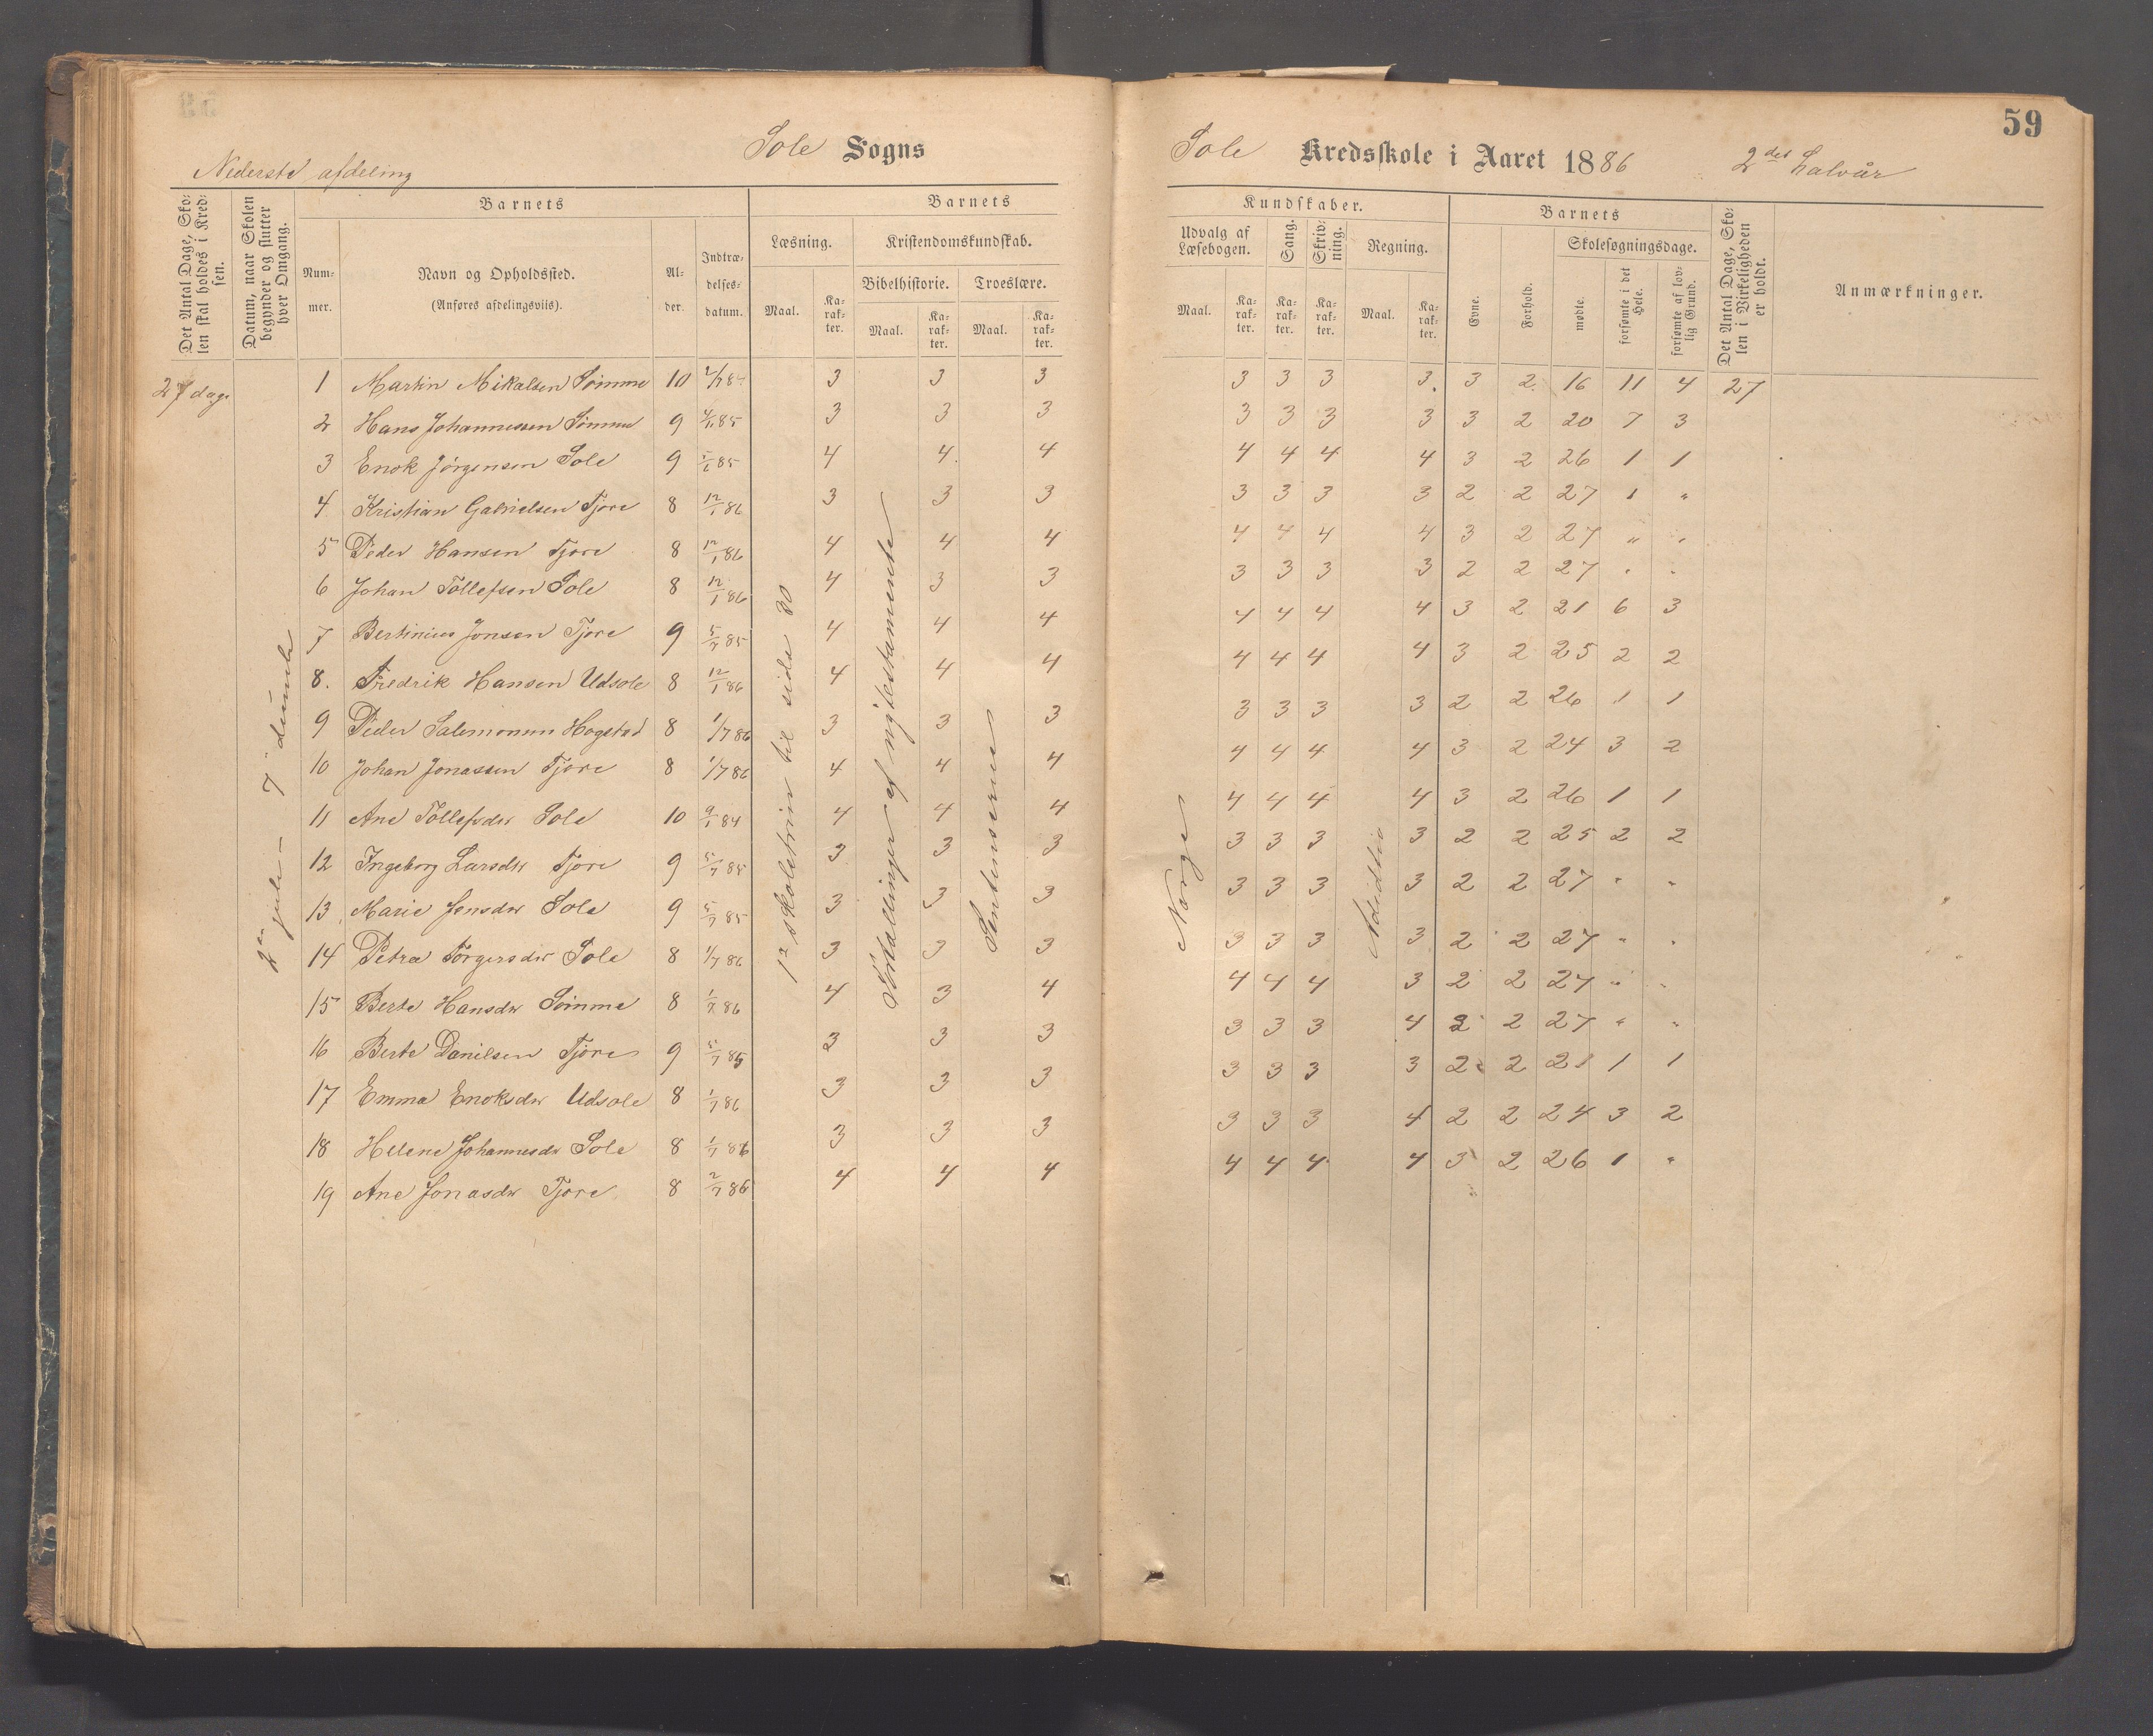 59
Nederste afdeling
Sole Sogns
Sole Kredsskole i Aaret 1886 2det Halvår
Det Antal Dage, Skolen skal holdes i Kredsen.
Datum, naar Skolen begynder og slutter hver Omgang.
Barnets
Nummer.
Navn og Opholdssted.
(Anføres afdelingsviis).
Alder.
Indtrædelsesdatum.
Barnets
Læsning.
Maal.
Karakter.
Kristendomskundskab.
Bibelhistorie.
Maal.
Karakter.
Troeslære.
Maal.
Karakter.
Kundskaber.
Udvalg af Læsebogen.
Maal.
Karakter.
Sang.
Karakter.
Skrivning.
Karakter.
Regning.
Maal.
Karakter.
Barnets
Evne.
Forhold.
Skolesøgningsdage.
mødte.
forsømte i det Hele.
forsømte af lovlig Grund.
Det Antal Dage, Skolen i Virkeligheden er holdt.
Anmærkninger.
27 dage
1 Martin Mikalsen Sømme 10 3 3 3 3 3 3 3. 3 2 16 11 4 27
2 Hans Johannessen Sømme 9 85 3 3 3 3 3 3 3 3 2 20 7 3
3 Enok Jørgensen Sole 9 85 4 4 4 4 4 4 4 3 2 26 1 1
4 Kristian Gabrielsen Tjore 8 12/1 86 3 3 3 3 3 3 3 2 2 27 " "
5 Peder Hansen Tjore 8 12/1 86 4 4 4 4 4 4 4 3 2 27 " "
6 Johan Tollefsen Sole 8 12/1 86 4 3 3 3 3 3 3 2 2 27 " "
7 Bertinius Jonsen Tjore 9 5/7 85 4 4 4 4 4 4 4 3 2 21 6 3
8. Fredrik Hansen Udsole 8 12/1 86 4 4 4 4 4 4 4 3 2 25 2 2
9 Peder Salemonsen Hogstad 8 1/7 86 3 3 3 3 3 3 3 2 2 26 1 1
10 Johan Jonassen Tjore 8 1/7 86 4 4 4 4 4 4 4 3 2 24 3 2
11 Ane Tollefsdr Sole 10 9/1 84 4 4 4 4 4 4 4 3 2 26 1 1
12 Ingeborg Larsdtr Tjore 9 5/7 85 3 3 3 3 3 3 3 2 2 25 2 2
13 Marie Jensdtr Sole 9 5/7 85 3 3 3 3 3 3 3 2 2 27 " "
14 Petra Torgersdtr Sole 8 1/7 86 3 3 3 3 3 3 3 2 2 27 " "
15 Berta Hansdtr Sømme 8 1/7 86 4 3 4 4 4 4 3 2 2 27 " "
16 Berte Danilsen Tjore 9 5/7 85 3 3 3 3 3 3 4 2 2 27 " "
17 Emma Enoksdtr Udsole 8 1/7 86 3 3 3 3 3 3 3 2 2 1 1
18 Helene Johannesdtr Sole 8 1/7 86 3 3 3 3 3 3 4 2 2 24 3 2
19 Ane Jonasdtr Tjore 8 2/7 86 4 4 4 4 4 4 4 3 2 26 1 "
1ste skoletrin til side 80
Fortællinger af nytestamente
Norge
Addition